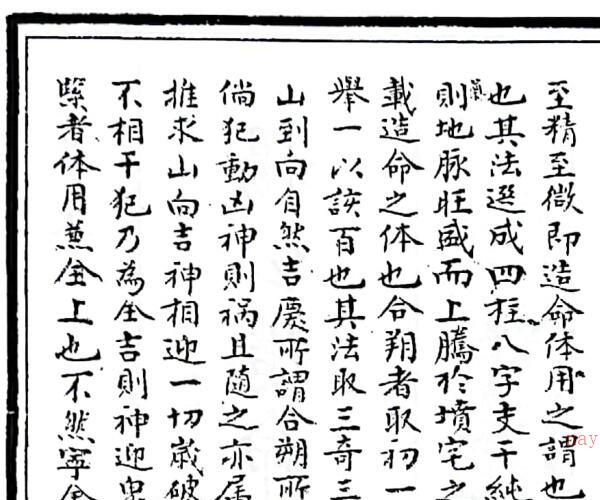 至精至微即造命体用之謂也
也其法選成四柱八字支干純
則地脉旺盛而上騰於墳宅之
載造命之体也合朔者取初一
舉一以該百也其法取三奇三
山到向自然吉慶所謂合朔所
倘犯動凶神則禍且隨之亦属
推求山向吉神相迎一切嵗破
不相干犯乃為全吉則神迎鬼
槩者体用兼全上也不然寧全